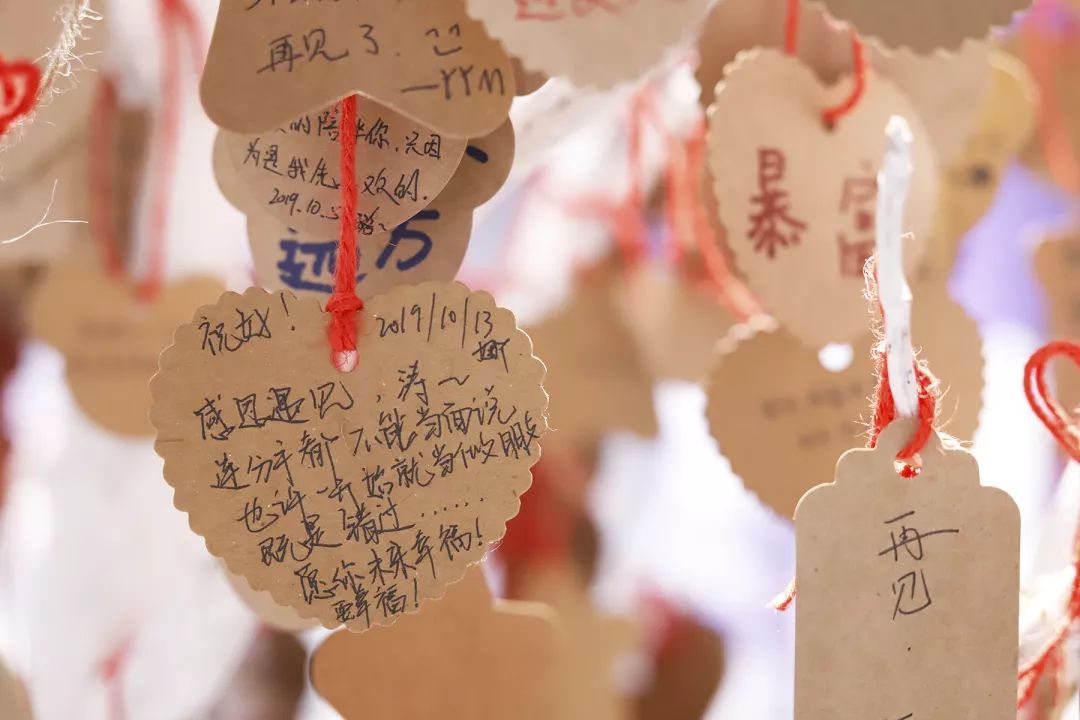 再见了.
—YYM
的陪伴你,只因
为是我先 欢的.
2019.10.5
远方
祝好!
2019/10/13
感恩遇见,涛~
连分手都 不能当面说
也许 开始就当做
既是 错过......
愿你未来幸福!
幸福!
暴
富
再
见